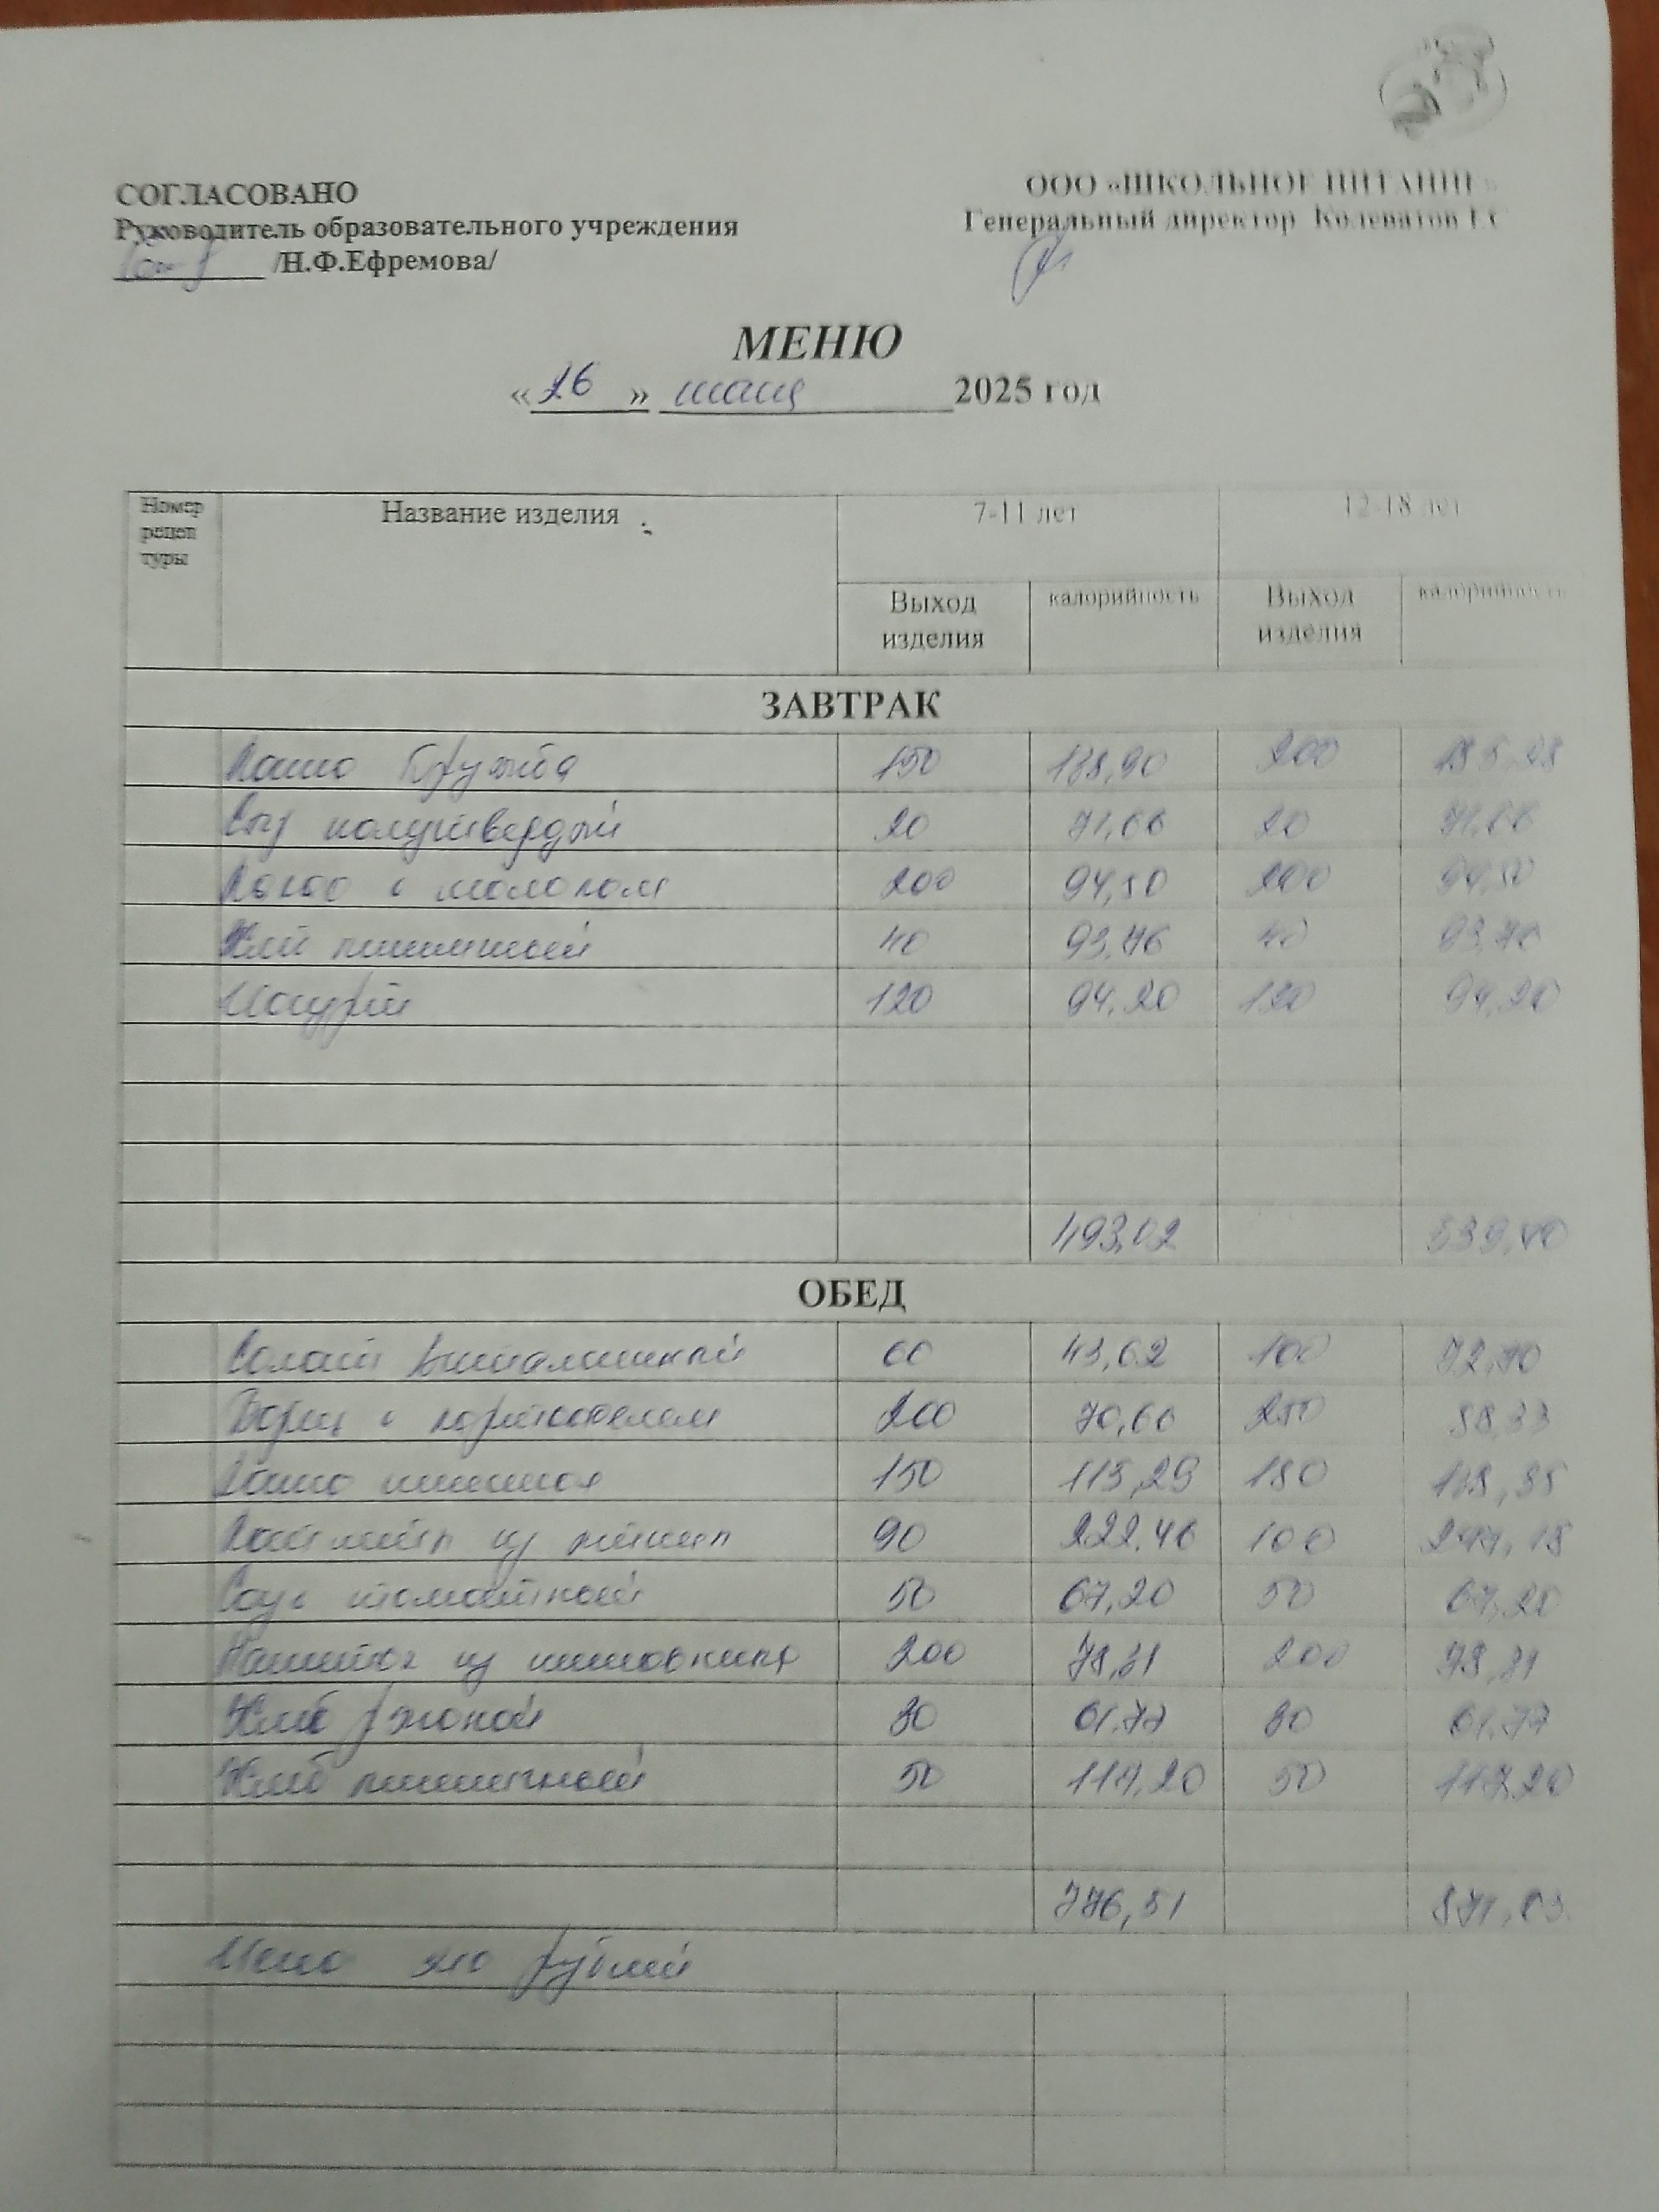 СОГЛАСОВАНО
Руководитель образовательного учреждения
/Н.Ф.Ефремова/
ООО «ШКОЛЬНОЕ ПИТАНИЕ»
Генеральный директор Колеватов Г.С
МЕНЮ
«26» 2025 год
Номер рецептуры Название изделия 7-11 лет 12-18 лет
Выход изделия калорийность Выход изделия калорийность
ЗАВТРАК
Каша Дружба 150 138,90 200 185,28
Сыр полутвердый 20 71,66 20 71,66
Какао с молоком 200 94,50 200 94,50
Хлеб пшеничный 40 93,76 40 93,76
120 94,20 120 94,20
493,02 539,40
ОБЕД
Салат Витаминный 60 43,62 100 72,70
Борщ с картофелем 200 70,66 250 88,33
Каша 150 115,29 180 138,35
из птицы 90 222,46 100 247,18
Соус томатный 50 67,20 50 67,20
Напиток из шиповника 200 78,31 200 78,31
Хлеб ржаной 30 61,77 30 61,77
Хлеб пшеничный 50 117,20 50 117,20
776,51 871,03
рублей